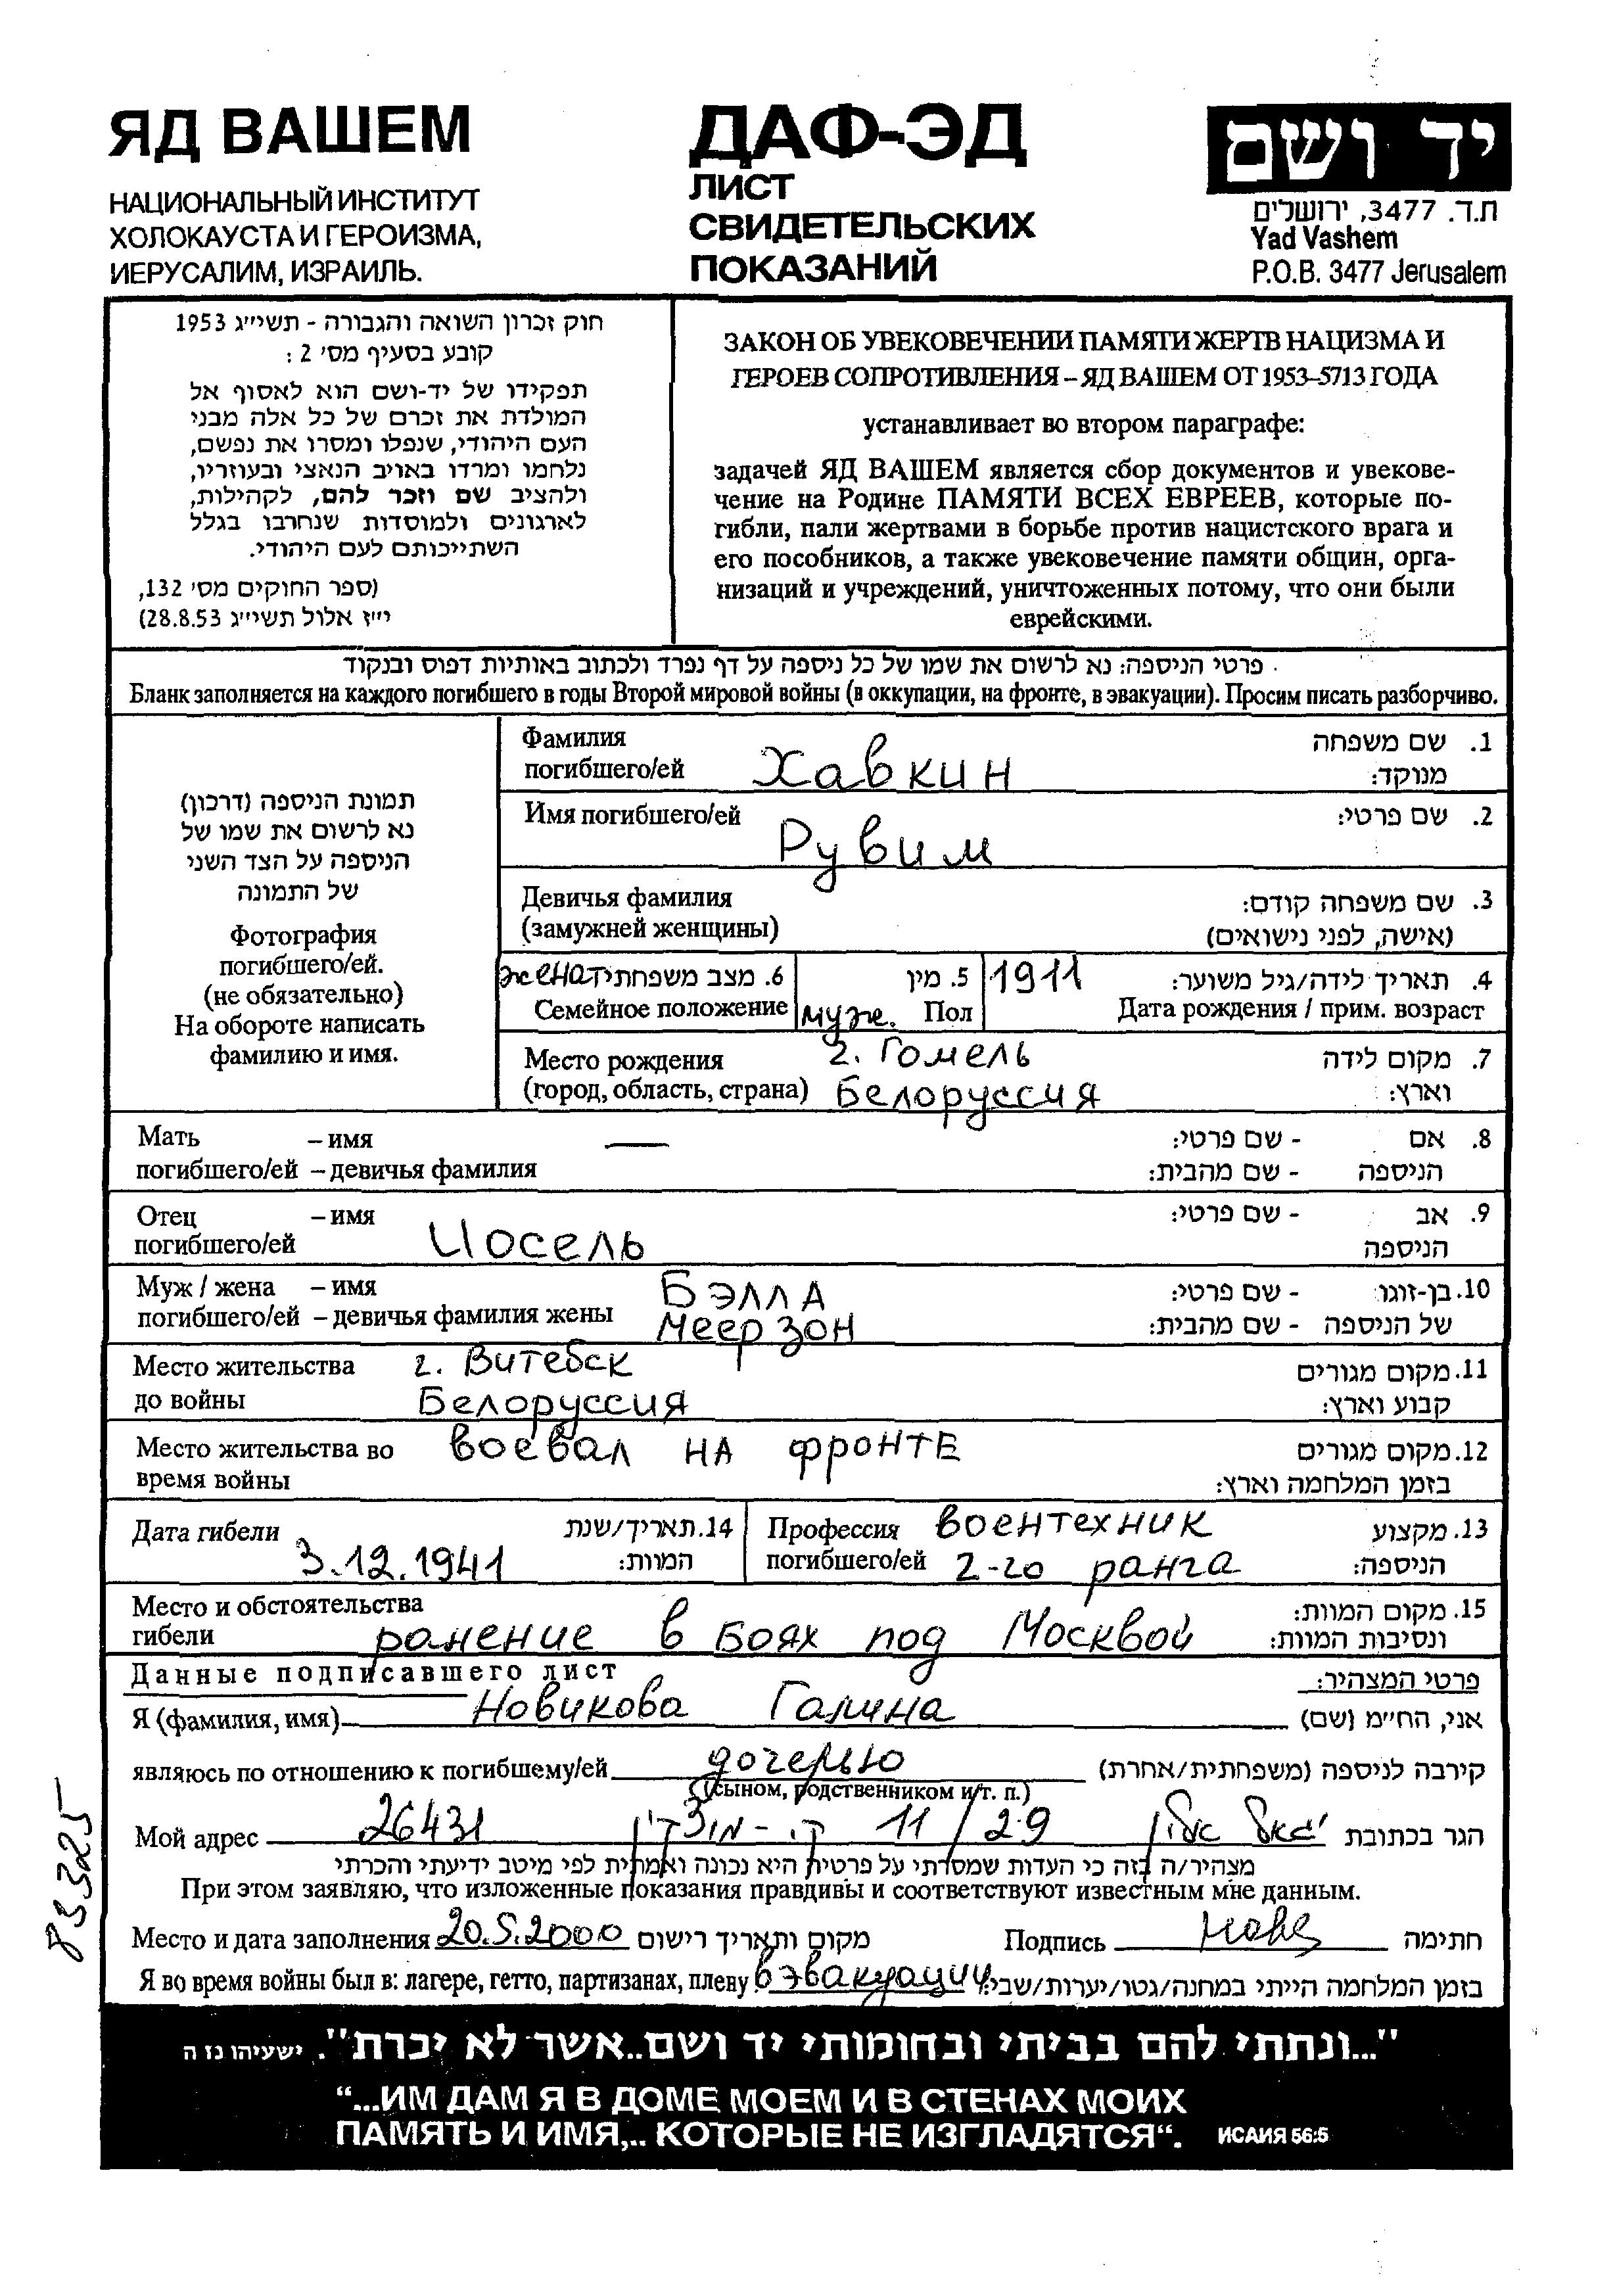 ЯД ВАШЕМ
НАЦИОНАЛЬНЫЙ ИНСТИТУТ
ХОЛОКАУСТА И ГЕРОИЗМА,
ИЕРУСАЛИМ, ИЗРАИЛЬ.
ДАФ-ЭД
ЛИСТ
СВИДЕТЕЛЬСКИХ
ПОКАЗАНИЙ
יד ושם
ת.ד. 3477, ירושלים
Yad Vashem
P.O.B. 3477 Jerusalem
חוק זכרון השואה והגבורה - תשי״ג 1953
קובע בסעיף מס׳ 2 :
תפקידו של יד-ושם הוא לאסוף אל
המולדת את זכרם של כל אלה מבני
העם היהודי, שנפלו ומסרו את נפשם,
נלחמו ומרדו באויב הנאצי ובעוזריו,
ולהציב שם וזכר להם, לקהילות,
לארגונים ולמוסדות שנחרבו בגלל
השתייכותם לעם היהודי.
(ספר החוקים מס׳ 132,
י״ז אלול תשי״ג 28.8.53)
ЗАКОН ОБ УВЕКОВЕЧЕНИИ ПАМЯТИ ЖЕРТВ НАЦИЗМА И
ГЕРОЕВ СОПРОТИВЛЕНИЯ – ЯД ВАШЕМ ОТ 1953–5713 ГОДА
устанавливает во втором параграфе:
задачей ЯД ВАШЕМ является сбор документов и увекове-
чение на Родине ПАМЯТИ ВСЕХ ЕВРЕЕВ, которые по-
гибли, пали жертвами в борьбе против нацистского врага и
его пособников, а также увековечение памяти общин, орга-
низаций и учреждений, уничтоженных потому, что они были
еврейскими.
פרטי הניספה: נא לרשום את שמו של כל ניספה על דף נפרד ולכתוב באותיות דפוס ובנקוד
Бланк заполняется на каждого погибшего в годы Второй мировой войны (в оккупации, на фронте, в эвакуации). Просим писать разборчиво.
תמונת הניספה (דרכון)
נא לרשום את שמו של
הניספה על הצד השני
של התמונה
Фотография
погибшего/ей.
(не обязательно)
На обороте написать
фамилию и имя.
Фамилия 1. שם משפחה
погибшего/ей Хавкин מנוקד:
Имя погибшего/ей Рувим 2. שם פרטי:
Девичья фамилия 3. שם משפחה קודם:
(замужней женщины) (אישה, לפני נישואים)
женат 6. מצב משפחתי 5. מין 1911 4. תאריך לידה/גיל משוער:
Семейное положение муж. Пол Дата рождения / прим. возраст
Место рождения г. Гомель 7. מקום לידה
(город, область, страна) Белоруссия וארץ:
Мать – имя — 8. אם - שם פרטי:
погибшего/ей – девичья фамилия הניספה - שם מהבית:
Отец – имя 9. אב - שם פרטי:
погибшего/ей Иосель הניספה
Муж / жена – имя Бэлла 10. בן-זוגו - שם פרטי:
погибшего/ей – девичья фамилия жены Меерзон של הניספה - שם מהבית:
Место жительства г. Витебск 11. מקום מגורים
до войны Белоруссия קבוע וארץ:
Место жительства во воевал на фронте 12. מקום מגורים
время войны בזמן המלחמה וארץ:
Дата гибели 14. תאריך/שנת Профессия воентехник 13. מקצוע
3.12.1941 המוות: погибшего/ей 2-го ранга הניספה:
Место и обстоятельства 15. מקום המוות:
гибели ранение в боях под Москвой ונסיבות המוות:
Данные подписавшего лист פרטי המצהיר:
Я (фамилия, имя) Новикова Галина אני, הח״מ (שם)
являюсь по отношению к погибшему/ей дочерью קירבה לניספה (משפחתית/אחרת)
(сыном, родственником и т. п.)
Мой адрес 26431 ק. - מוצקין 11/29 יגאל אלון הגר בכתובת
מצהיר/ה בזה כי העדות שמסרתי על פרטיה היא נכונה ואמתית לפי מיטב ידיעתי והכרתי
При этом заявляю, что изложенные показания правдивы и соответствуют известным мне данным.
Место и дата заполнения 20.5.2000 מקום ותאריך רישום Подпись חתימה
Я во время войны был в: лагере, гетто, партизанах, плену в эвакуации בזמן המלחמה הייתי במחנה/גטו/יערות/שבי:
83325
"...ונתתי להם בביתי ובחומותי יד ושם..אשר לא יכרת". ישעיהו נו ה
“...ИМ ДАМ Я В ДОМЕ МОЕМ И В СТЕНАХ МОИХ
ПАМЯТЬ И ИМЯ,.. КОТОРЫЕ НЕ ИЗГЛАДЯТСЯ“. ИСАИЯ 56:5